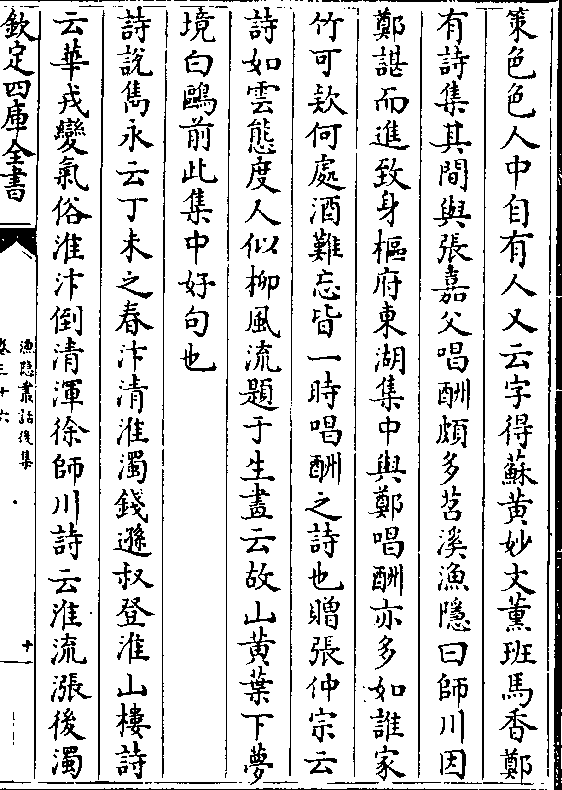 策色色人中自有人又云字得蘇黄妙文薰班馬香鄭
有詩集其間與張嘉父唱酬頗多苕溪漁隱曰師川因
鄭諶而進致身樞府東湖集中與鄭唱酬亦多如誰家
竹可欵何處酒難忘皆一時唱酬之詩也贈張仲宗云
詩如雲態度人似栁風流題于生畫云故山黄葉下夢
境白鷗前此集中好句也
詩説雋永云丁未之春汴清淮濁錢遜叔登淮山樓詩
云華戎變氣俗淮汴倒清渾徐師川詩云淮流漲後濁
欽定四庫全書
漁隱叢話後集
卷三十六
十